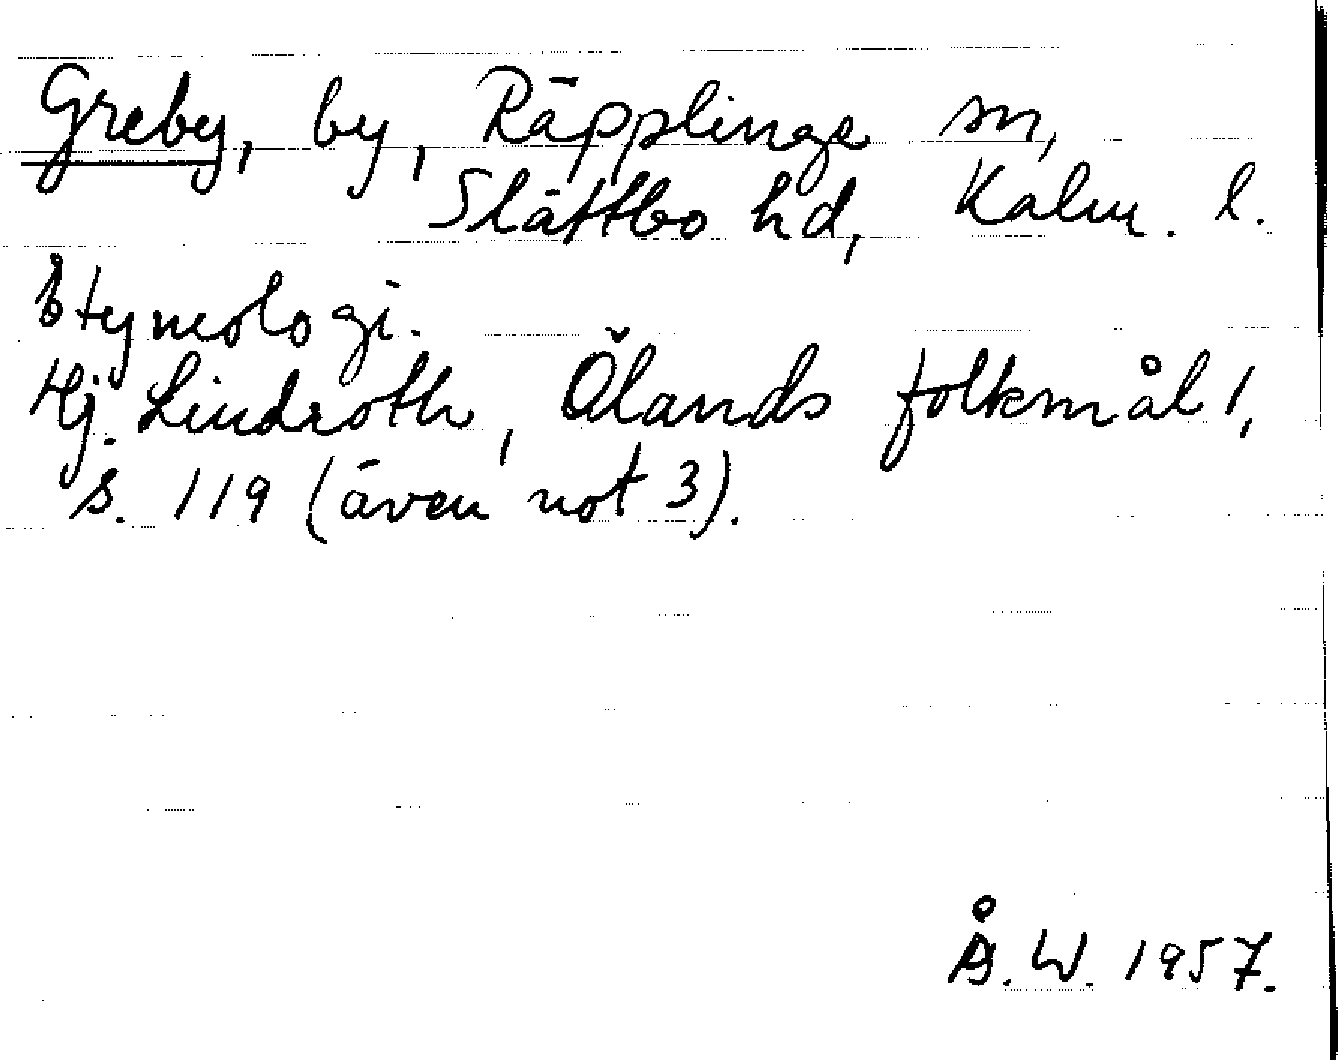 Greby, by, Räpplinge sn,
Slättbo hd, Kalm. l.
Etymologi.
Hj. Lindroth, Ölands folkmål 1,
s. 119 (även not 3).
Å. W. 1957.